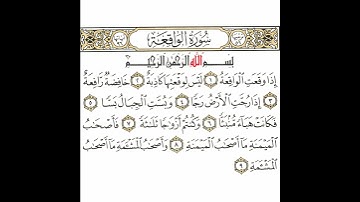 سُورَةُ الوَاقِعَةِ
بِسْمِ اللَّهِ الرَّحْمَٰنِ الرَّحِيمِ
إِذَا وَقَعَتِ الْوَاقِعَةُ ١ لَيْسَ لِوَقْعَتِهَا كَاذِبَةٌ ٢ خَافِضَةٌ رَّافِعَةٌ
٣ إِذَا رُجَّتِ الْأَرْضُ رَجًّا ٤ وَبُسَّتِ الْجِبَالُ بَسًّا ٥
فَكَانَتْ هَبَاءً مُّنبَثًّا ٦ وَكُنتُمْ أَزْوَاجًا ثَلَاثَةً ٧ فَأَصْحَابُ
الْمَيْمَنَةِ مَا أَصْحَابُ الْمَيْمَنَةِ ٨ وَأَصْحَابُ الْمَشْأَمَةِ مَا أَصْحَابُ
الْمَشْأَمَةِ ٩